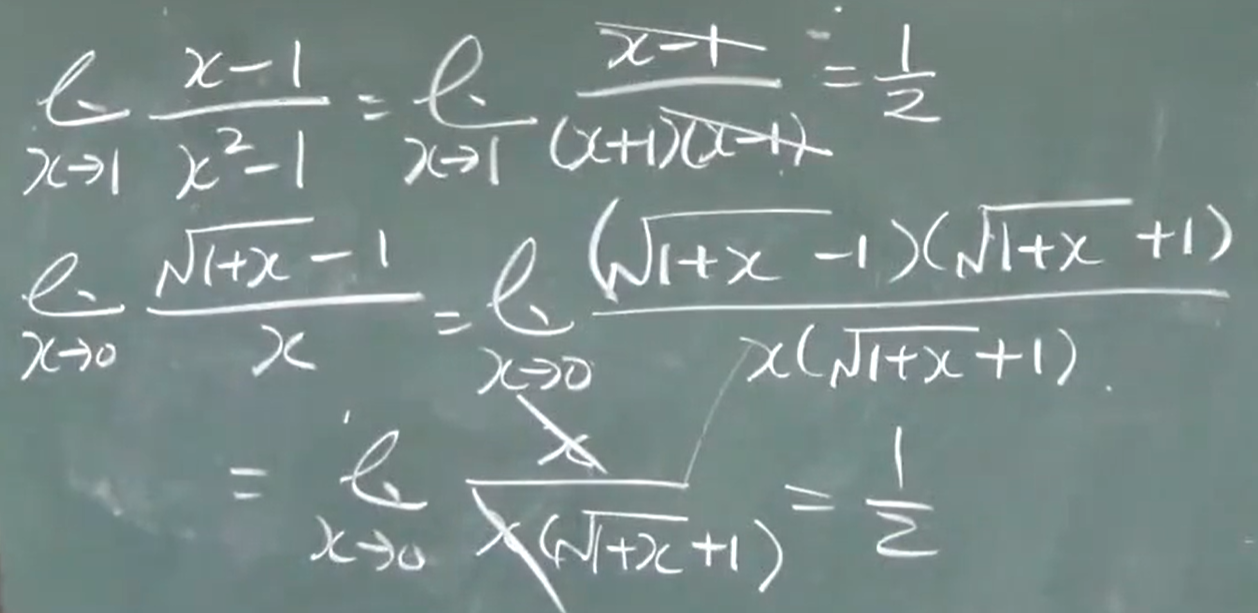 lim_{x→1} \frac{x-1}{x^2-1} = lim_{x→1} \frac{x-1}{(x+1)(x-1)} = \frac{1}{2}
lim_{x→0} \frac{\sqrt{1+x}-1}{x} = lim_{x→0} \frac{(\sqrt{1+x}-1)(\sqrt{1+x}+1)}{x(\sqrt{1+x}+1)}
= lim_{x→0} \frac{x}{x(\sqrt{1+x}+1)} = \frac{1}{2}